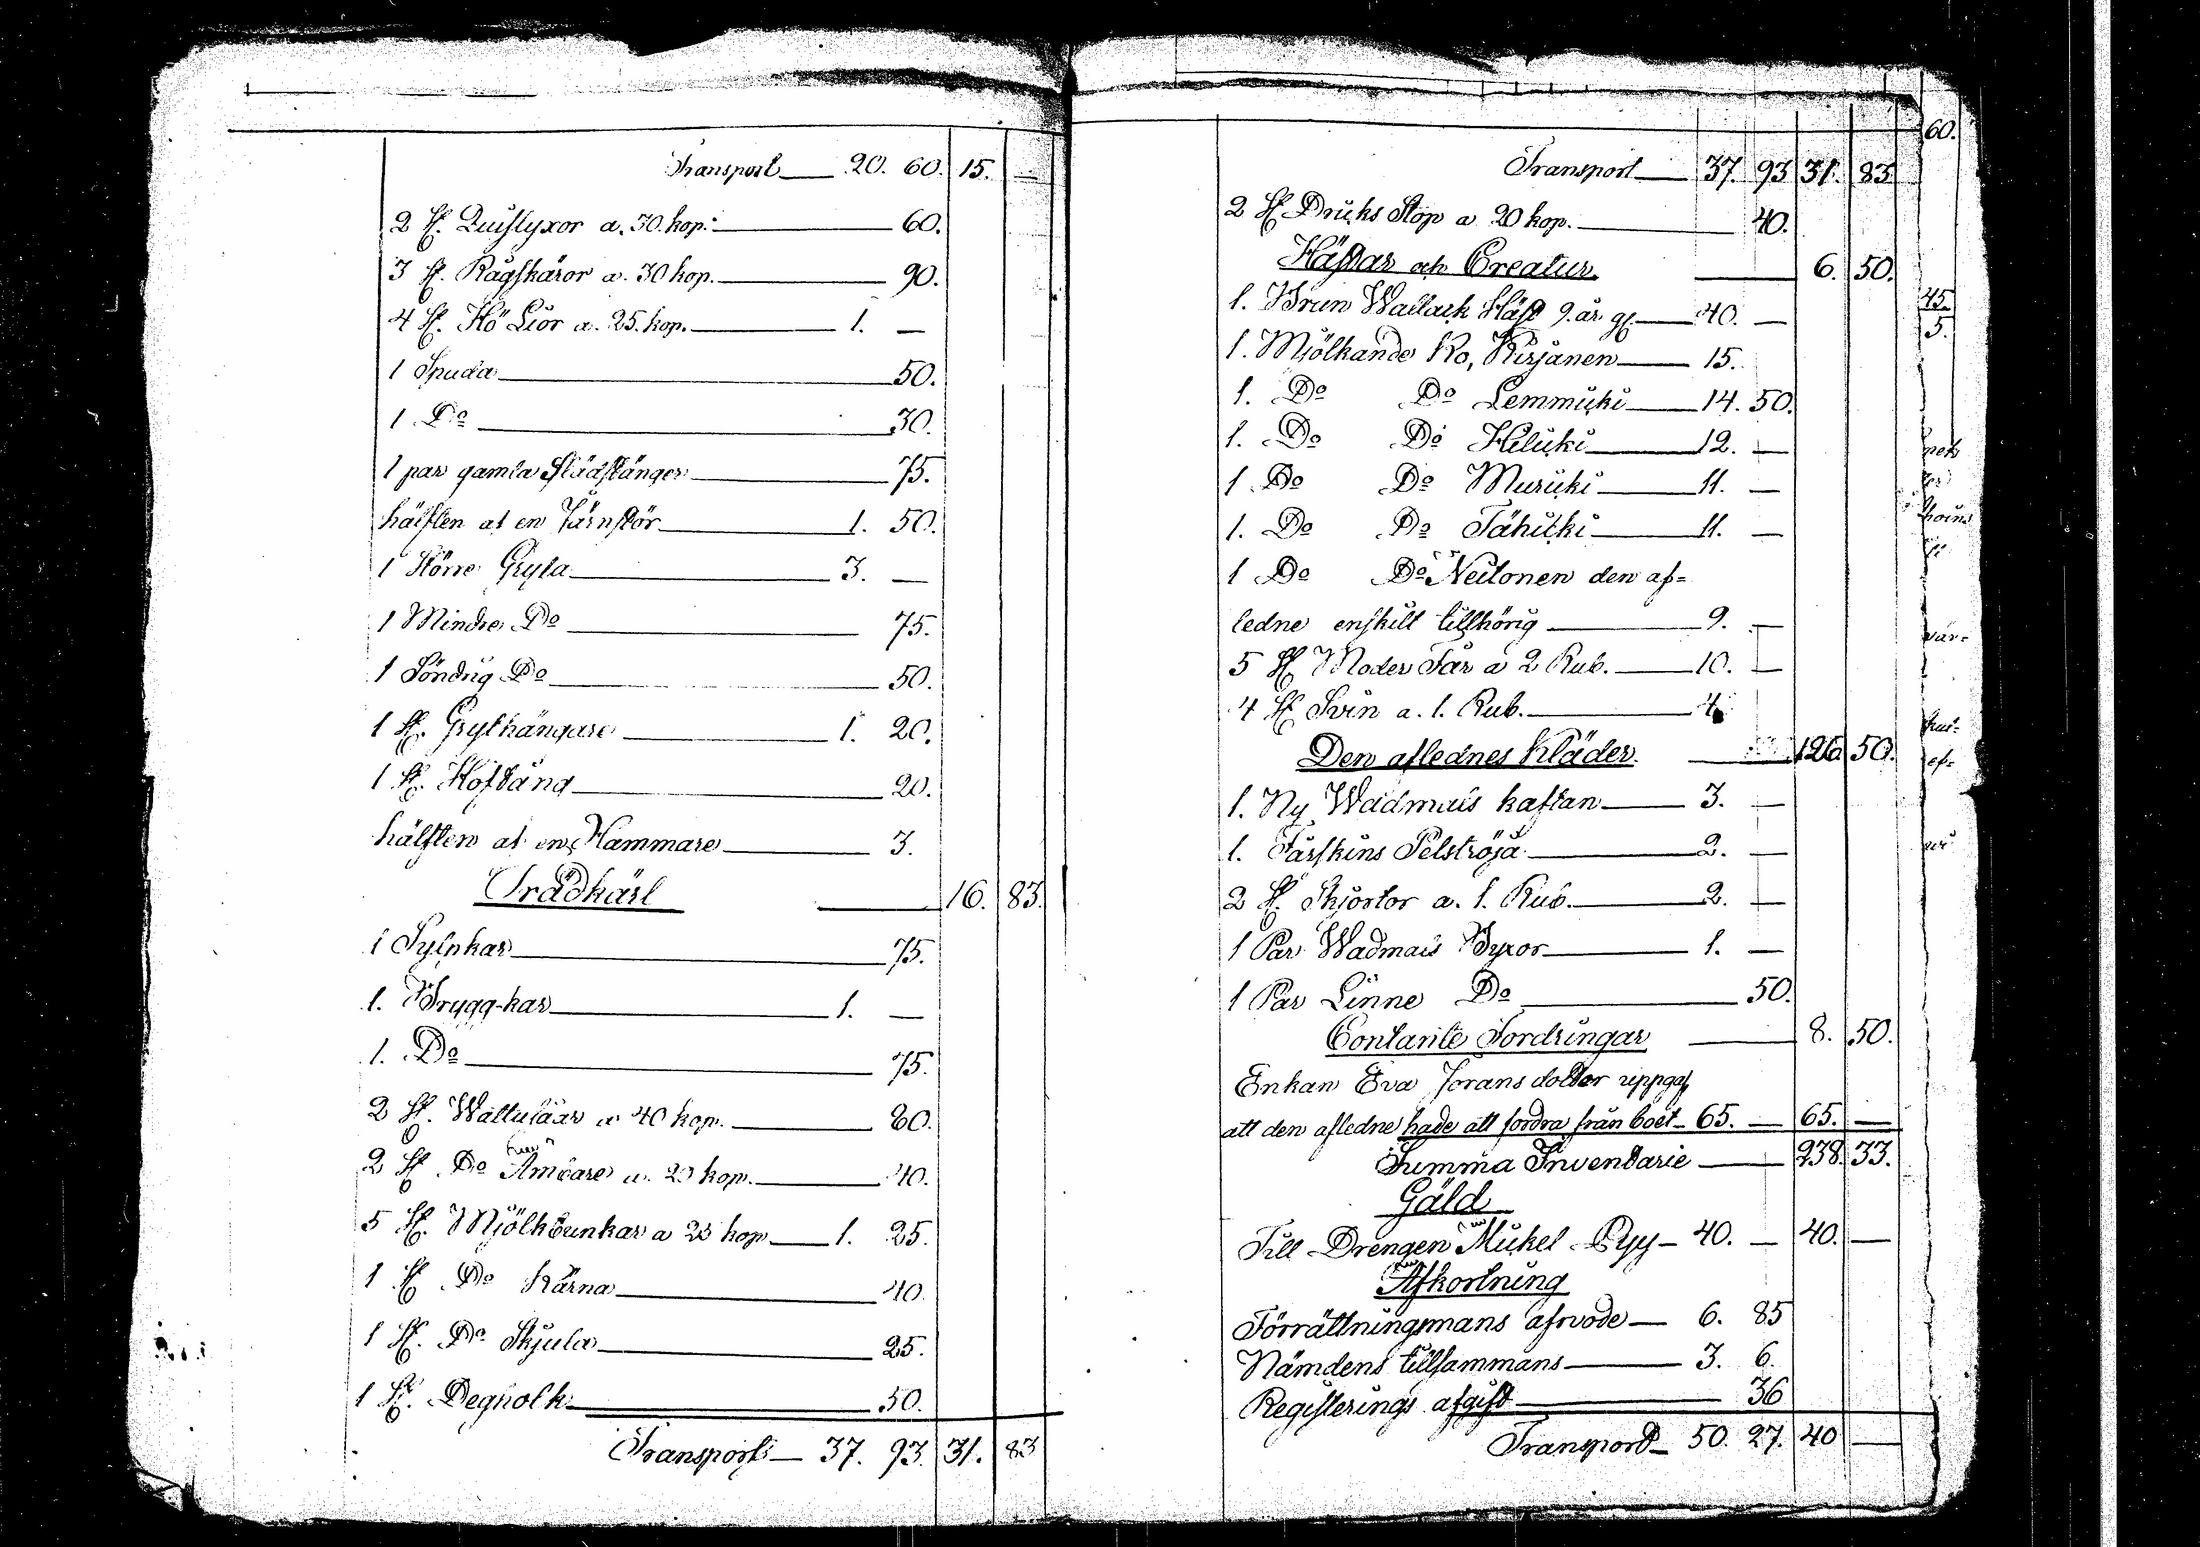 Transport — 20. 60. 15. —
2 st. Quistyxor a. 30. kop. — 60.
3 st. Rågskäror a. 30 kop. — 90.
4 st. Hö Lior a. 25. kop. — 1. —
1 Spuda — 50.
1 Do — 30.
1 par gamla Städstänger — 75.
hälften af en Järnstör — 1. 50.
1 Större Gryta — 3. —
1 Mindre Do — 75.
1 Söndrig Do — 50.
1 st. Grythängare — 1. 20.
1 st. Hoftång — 20.
hälften af en Hammare — 3.
Trädkärl — 16. 83.
1 — 75.
1. Brygg-kar — 1. —
1. Do — 75.
2 st. a 40 kop. — 80.
2 st Do Ämbare a. 20 kop. — 40.
5 st. Mjölkbunkar a 25 kop — 1. 25.
1 st Do Kärna — 40.
1 st. Do Skjula — 25.
1 st. Degholk — 50.
Transport — 37. 93. 31. 83
Transport — 37. 93 31. 83
2 st Dricks Stop a 20 kop. — 40.
Hästar och Creatur. — 6. 50.
1. Brun Wallack Häst 9. år gl. — 40. —
1. Mjölkande Ko, Kirjanen — 15.
1. Do Do Lemmicki — 14. 50.
1. Do Do Heluki — 12. —
1 Do Do Muriki — 11. —
1. Do Do Tähicki — 11. —
1 Do Do Neitonen den af=
ledne enskilt tillhörig — 9. —
5 st Moder Får a 2 Rub. — 10. —
4 st Svin a. 1. Rub. — 4
Den aflednes Kläder. — 126. 50.
1. Ny Wadmals kaftan — 3. —
1. Fårskins Pelströja — 2. —
2 st. Skjortor a. 1. Rub. — 2. —
1 Par Wadmals Byxor — 1. —
1 Par Linne Do — 50.
Contante Fordringar — 8. 50.
Enkan Eva Jöransdotter uppgaf
att den afledne hade att fordra från boet — 65. — 65. —
Summa Inventarie — 238. 33.
Gäld
Till Drengen Mickel Pyy — 40. — 40. —
Afkortning
Förrättningsmans arvode — 6. 85
Nämdens tillsammans — 3. 6.
Registerings afgift — 36
Transport — 50. 27. 40 —
60.
45.
5.